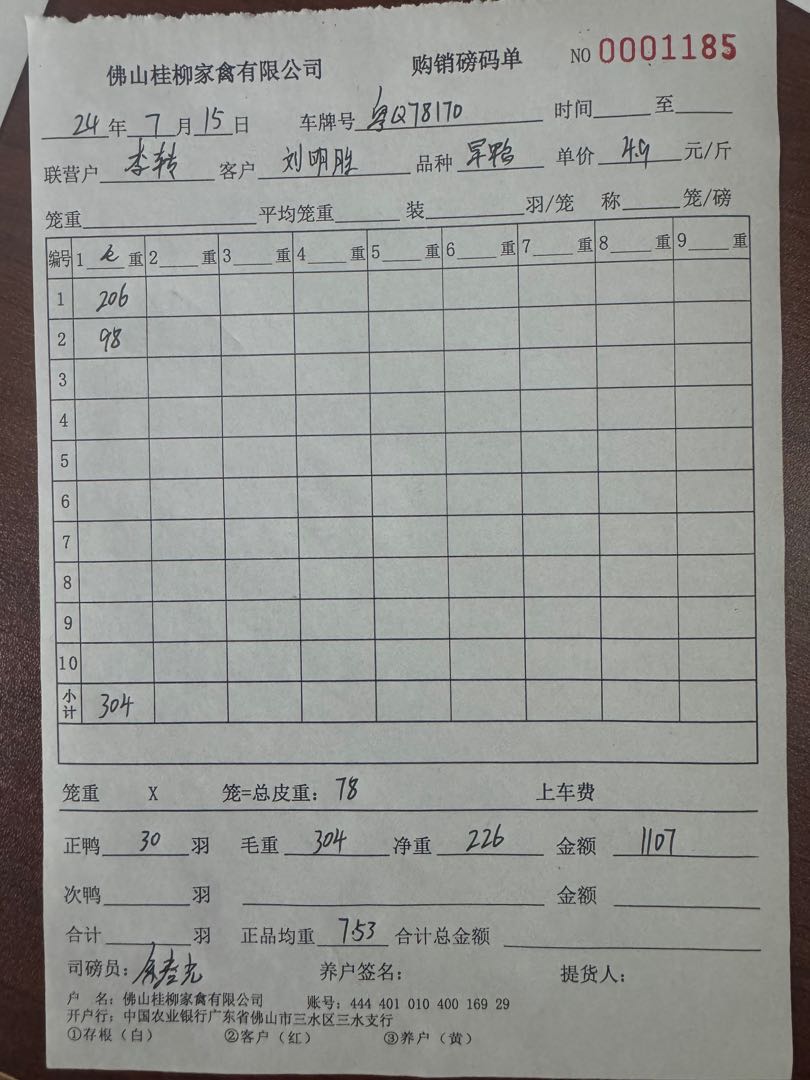 佛山桂柳家禽有限公司 购销磅码单 NO 0001185
24年7月15日 车牌号 粤Q78170 时间 至
联营户 李转 客户 刘明胜 品种 旱鸭 单价 4.9 元/斤
笼重 平均笼重 装 羽/笼 称 笼/磅
编号 1 毛 重 2 重 3 重 4 重 5 重 6 重 7 重 8 重 9 重
1 206
2 98
3
4
5
6
7
8
9
10
小计 304
笼重 X 笼=总皮重: 78 上车费
正鸭 30 羽 毛重 304 净重 226 金额 1107
次鸭 羽 金额
合计 羽 正品均重 7.53 合计总金额
司磅员: 养户签名: 提货人:
户 名: 佛山桂柳家禽有限公司 账号: 444 401 010 400 169 29
开户行: 中国农业银行广东省佛山市三水区三水支行
①存根(白) ②客户(红) ③养户(黄)